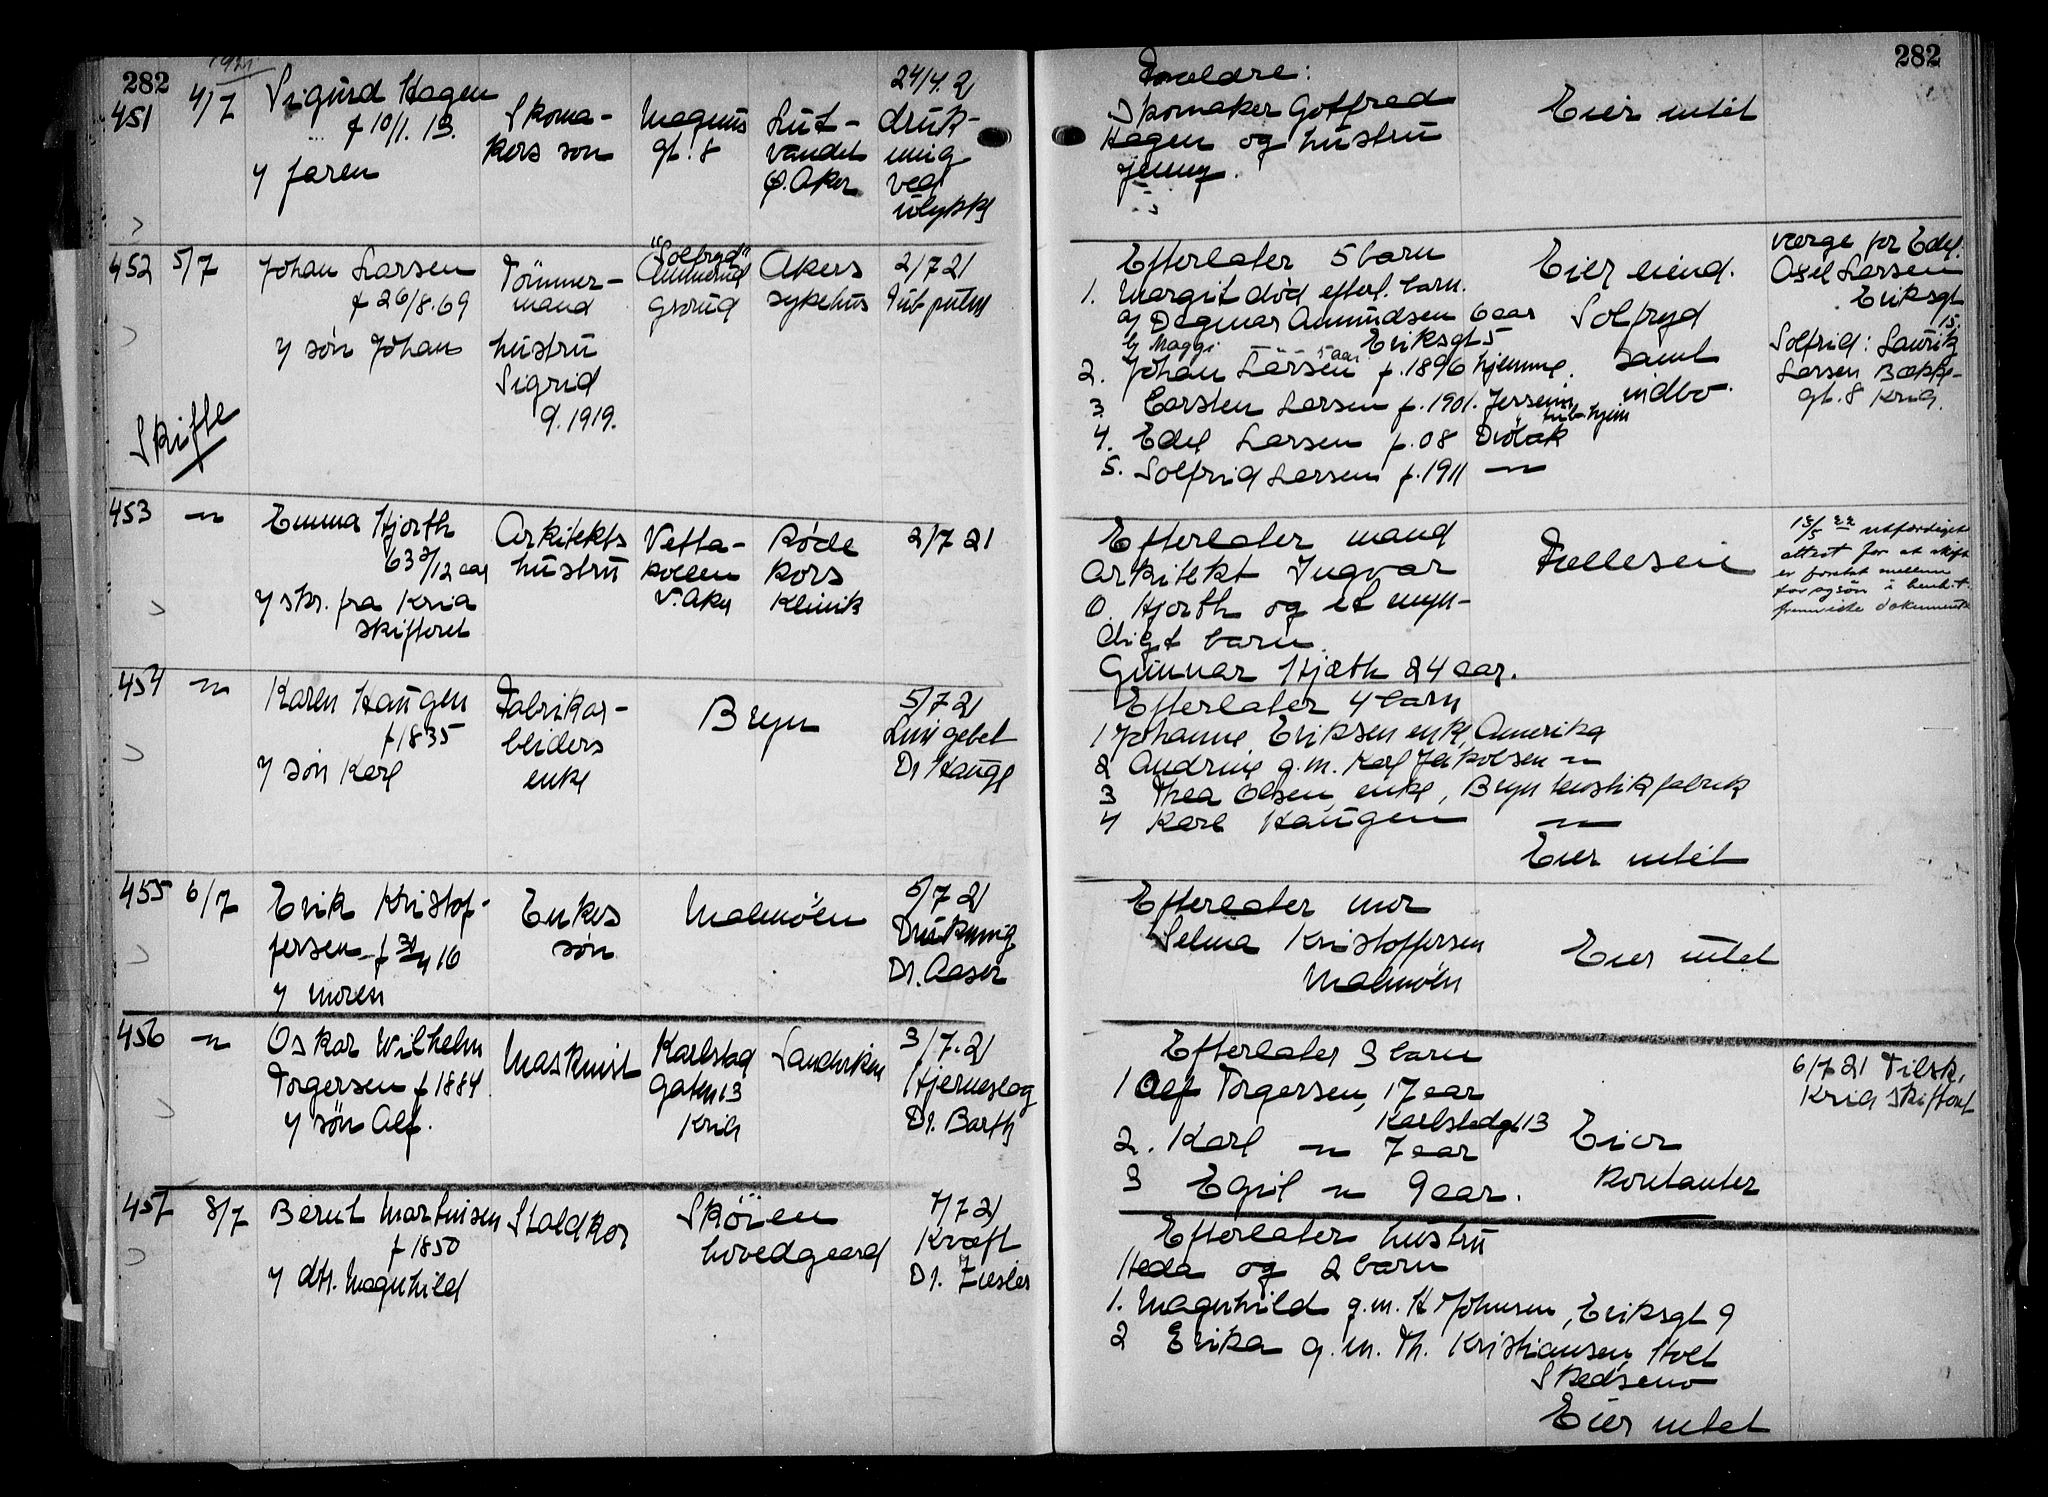 282
1921
451
4/7
Sigurd Hagen
f 10/1. 13.
y faren
Skoma-
kers søn
Magnus
gt. 8
Lut-
vandet
Ø. Aker
24/4. 2
druk-
ning
ved
ulykke
282
Forældre:
Skomaker Gotfred
Hagen og hustru
Jenny.
Eier intet
452
5/7
Johan Larsen
f 26/8. 69
y søn Johan
Skifte
Tömmer-
mand
hustru
Sigrid
d. 1919.
"Solfryd"
Ammerud
Grorud
Akers
sykehus
2/7 21
Tub pulm
Efterlater 5 barn
1. Margit død efterl. barn.
a/ Dagmar Amundsen 6 aar
b/ Maggi 5 aar Eriksgt 5
2. Johan Larsen f. 1896 hjemme.
3 Carsten Larsen f. 1901.
4. Edel Larsen f. 08 Dröbak
5. Solfrid Larsen f. 1911 — " —
Eier eiend.
Solfryd
samt
indbo.
værge for Edel.
Axel Larsen
Eriksgt
15.
Solfrid: Laurits
Larsen Bække-
gt. 8 Kria.
453
— " —
Emma Hjorth
63 3/12 aar
y skr. fra Kria
skifteret
Arkitekts
hustru
Vetta-
kollen
V. Aker
Røde
Kors
Klinik
2/7 21
Efterlater mand
Arkitekt Ingvar
O. Hjorth og et myn-
digt barn
Gunnar Hjorth 24 aar.
Fælleseie
utfærdiget
attest for at skifte
er foretat mellem
far og søn i henh. t.
fremviste dokumenter
454
— " —
Karen Haugen
f 1835
y søn Karl
Fabrikar-
beiders
enke
Bryn
5/7 21
Dr Hauge
Efterlater 4 barn
1 Johanne Eriksen enke, Amerika
2 Andrine g.m. Karl Jakobsen — " —
3 Thea Olsen, enke, Bryn
4 Karl Haugen — " —
Eier intet
455
6/7
Erik Kristof-
fersen f
y moren
Enkes
søn
Malmöen
5/7 21
Drukning
Dr. Aaser
Efterlater mor
Selma Kristoffersen
Malmöen
Eier intet
456
— " —
Oskar Wilhelm
Torgersen f 1884
y søn Alf.
Maskinist
Karlstad
gaten 13
Kria
Sandviken
3/7. 21
Hjerneslag
Dr. Barth
Efterlater 3 barn
1 Alf Torgersen, 17 aar
Karlstadgt 13
2. Karl — " — 7 aar
3 Egil — " — 9 aar.
Eier
kontanter
6/7 21 Tilsk.
Kria skifteret
457
8/7
Bernt Martinsen
f 1850
y dtr. Magnhild
Staldkar
Sköien
hovedgaard
7/7 21
Kræft
Dr. Ziesler
Efterlater hustru
Heda og 2 barn
1. Magnhild g.m. H Johnsen, Eriksgt 9
2 Erika g.m. Th. Kristiansen, Holt
Skedsmo
Eier intet